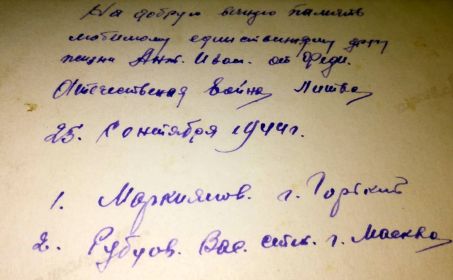 На добрую вечную память
любимому единственному другу
жизни Ант. Иван. от Феди.
Отечественная война Литва
25. Сентября 1944 г.
1. Маркиянов. г. Горький
2. Рубцов. Вас. г. Москва